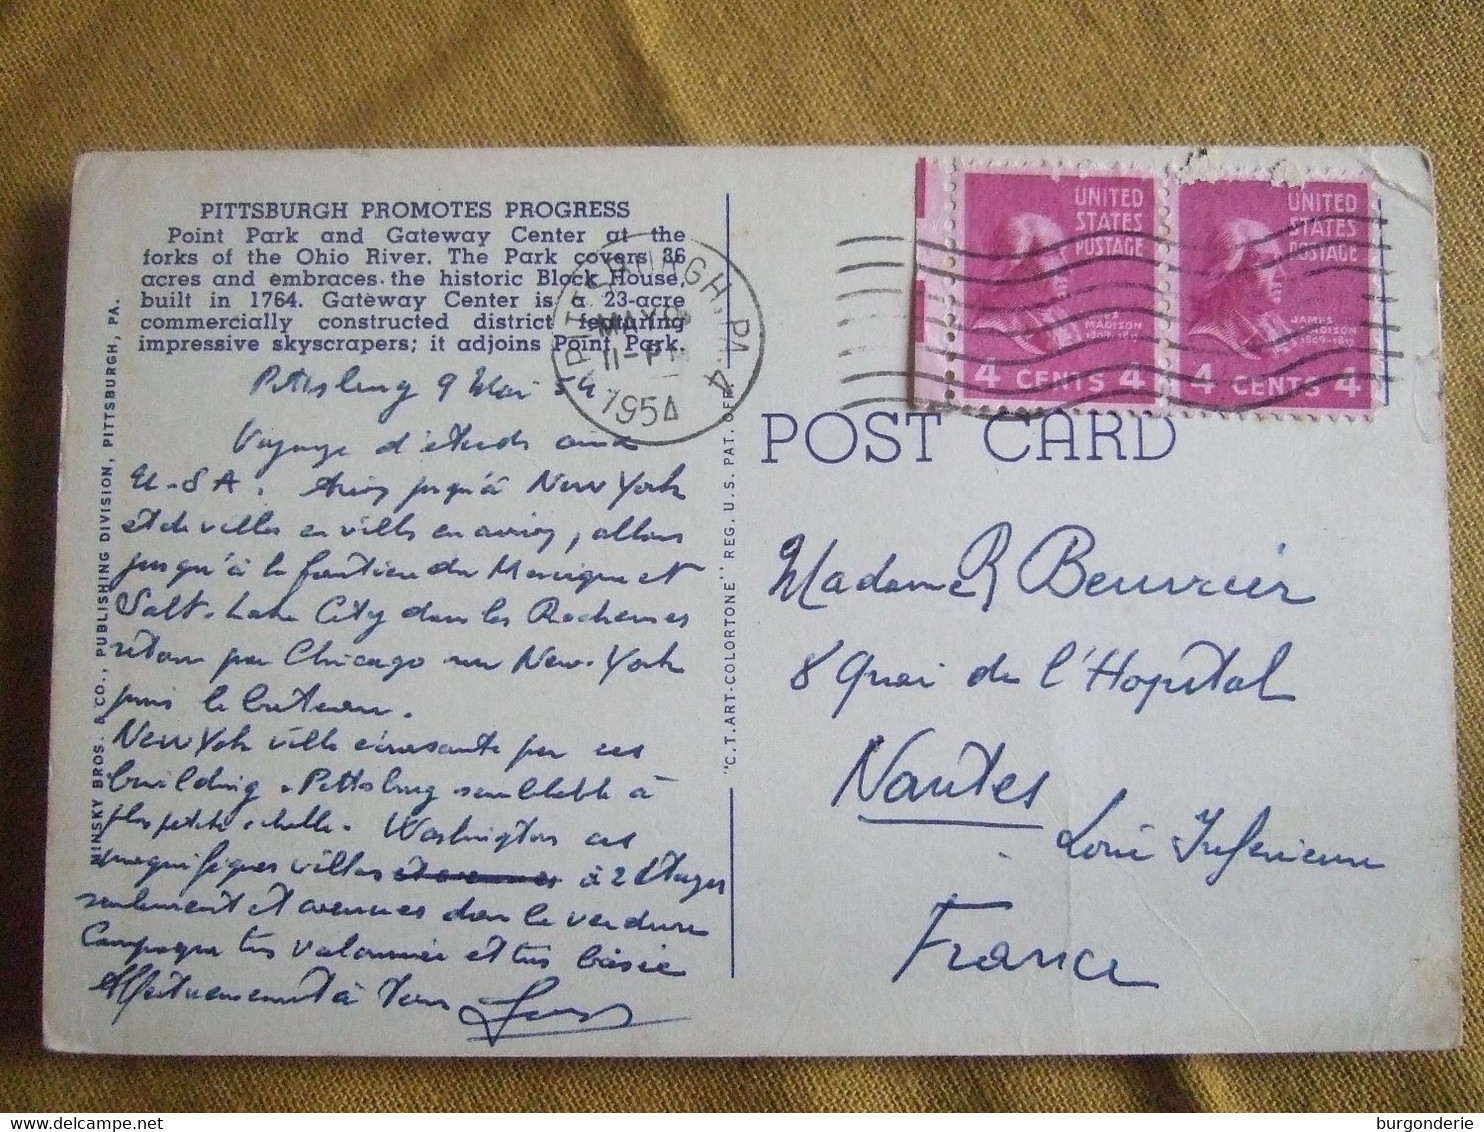 PITTSBURGH PROMOTES PROGRESS
Point Park and Gateway Center at the
forks of the Ohio River. The Park covers 36
acres and embraces the historic Block House,
built in 1764. Gateway Center is a 23-acre
commercially constructed district featuring
impressive skyscrapers; it adjoins Point Park.
Pittsburg 9 Mai 54
Voyage d'étude aux
U-SA. Avion jusqu'à New York
et de villes en villes en avion, allons
jusqu'à la frontière du Mexique et
Salt-Lake City dans les Rocheuses
retour par Chicago sur New-York
puis le bateau.
New York ville écrasante par ces
building. Pittsburg semblable à
plus petite échelle. Washington
magnifiques villas à 2 étages
seulement et avenues dans la verdure
Campagne très vallonnée et très boisée
Affectueusement à tous
MINSKY BROS. & CO., PUBLISHING DIVISION, PITTSBURGH, PA.
"C.T. ART-COLORTONE" REG. U.S. PAT. OFF.
PITTSBURGH, PA. 4
MAY 9
11-PM
1954
UNITED
STATES
POSTAGE
JAMES
MADISON
1809-1817
4 CENTS 4
UNITED
STATES
POSTAGE
JAMES
MADISON
1809-1817
4 CENTS 4
POST CARD
Madame R Beuvrier
8 Quai de l'Hopital
Nantes
Loire Inferieure
France
burgonderie